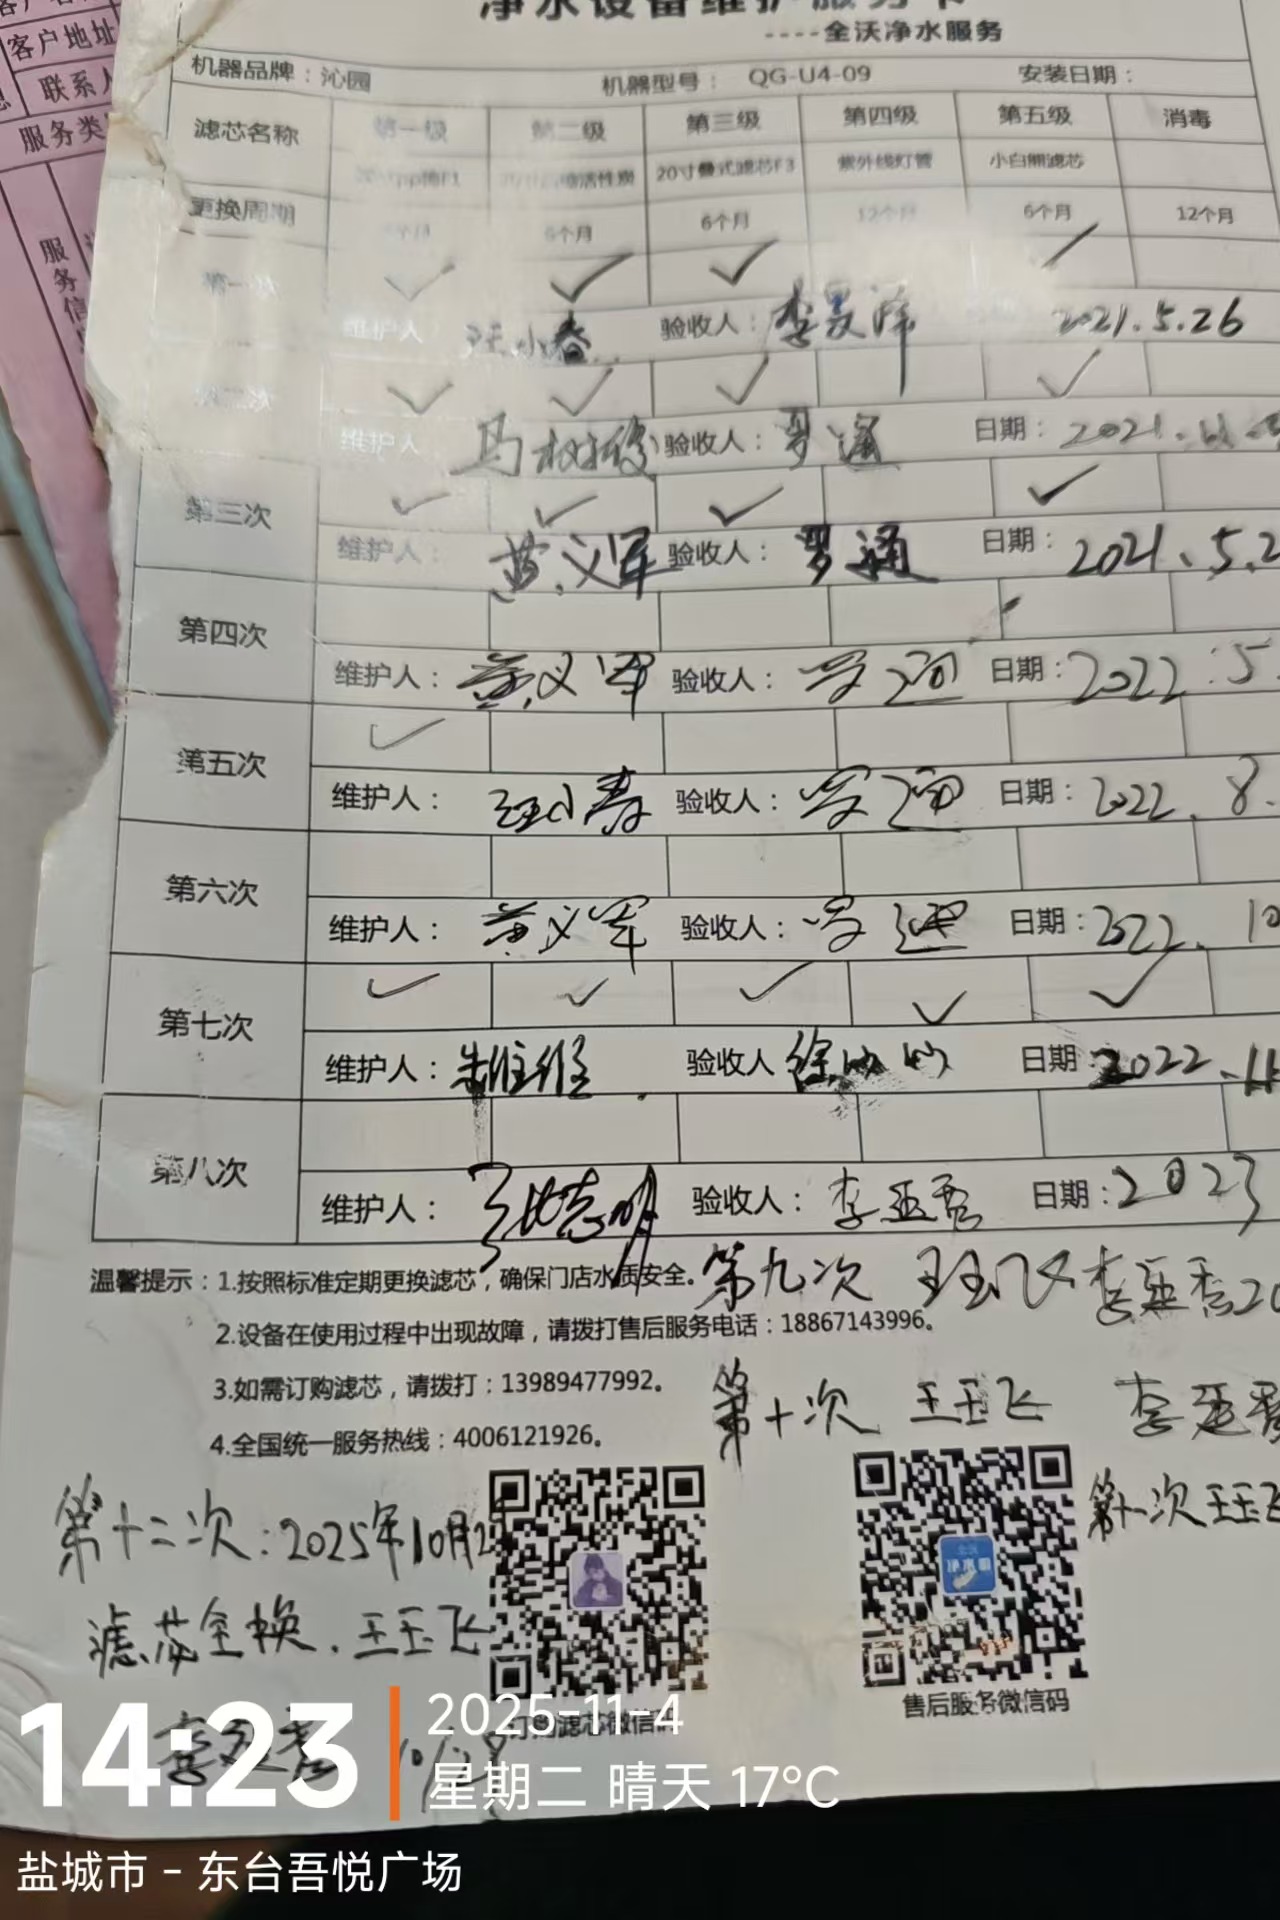 客户地址
联系人
服务类
服务信
净水设备维护服务卡
----全沃净水服务
机器品牌：沁园 机器型号： QG-U4-09 安装日期：
滤芯名称 第一级 第二级 第三级 第四级 第五级 消毒
20寸叠式滤芯F3 紫外线灯管 小白熊滤芯
更换周期 6个月 6个月 12个月 6个月 12个月
第一次
维护人 汪小春 验收人： 2021.5.26
第二次
维护人 验收人：罗通 日期： 2021.
第三次
维护人： 黄义军 验收人：罗通 日期： 2021.5.2
第四次
维护人： 黄义军 验收人：罗通 日期：2022.5
第五次
维护人： 汪小春 验收人：罗通 日期：2022.8.
第六次
维护人： 黄义军 验收人：罗通 日期：2022.10
第七次
维护人： 验收人 徐 日期 2022.11
第八次
维护人： 张志明 验收人： 李亚秀 日期：2023
温馨提示：1.按照标准定期更换滤芯，确保门店水质安全。 第九次 王玉飞 李亚秀 20
2.设备在使用过程中出现故障，请拨打售后服务电话：18867143996。
3.如需订购滤芯，请拨打：13989477992。
第十次 王玉飞 李亚秀
4.全国统一服务热线：4006121926。
第十一次 王玉飞
第十二次：2025年10月2
滤芯全换．王玉飞
净水
订购滤芯微信码 售后服务微信码
李亚秀 10/28
14:23
2025-11-4
星期二 晴天 17°C
盐城市 - 东台吾悦广场